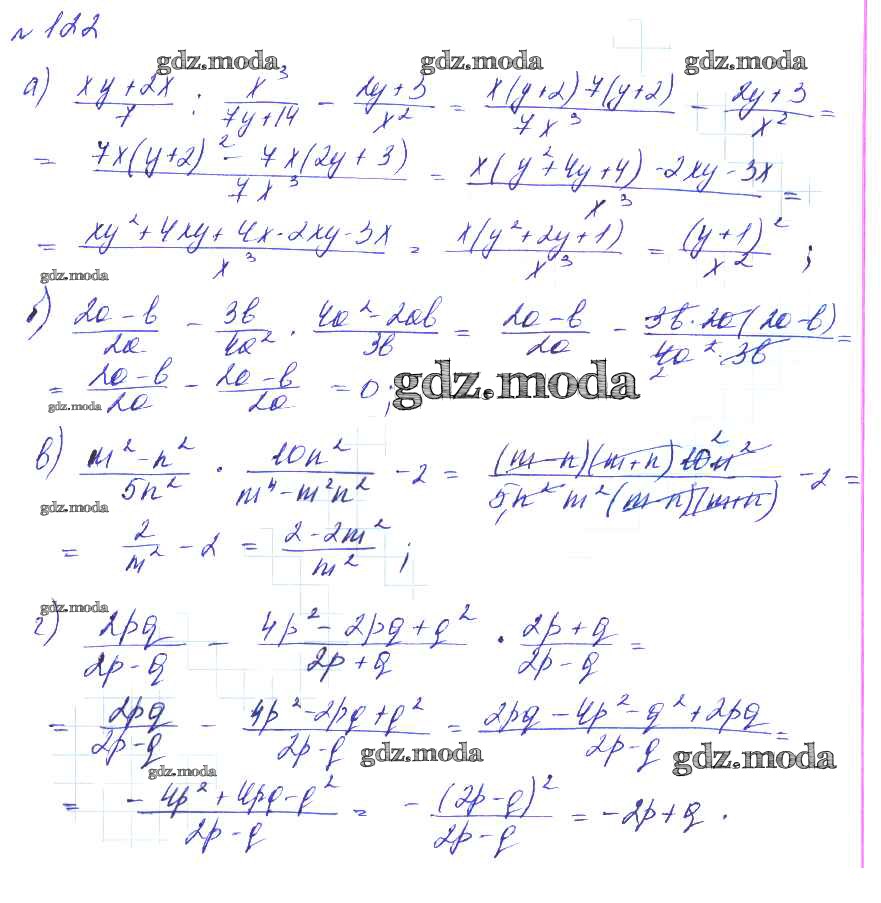 № 122
gdz.moda gdz.moda gdz.moda
а) (xy + 2x)/7 : x³/(7y + 14) − (2y + 3)/x² = (x(y + 2) 7(y + 2))/(7x³) − (2y + 3)/x² =
= (7x(y + 2)² − 7x(2y + 3))/(7x³) = (x(y² + 4y + 4) − 2xy − 3x)/x³ =
= (xy² + 4xy + 4x − 2xy − 3x)/x³ = (x(y² + 2y + 1))/x³ = (y + 1)²/x² ;
gdz.moda
б) (2a − b)/2a − 3b/4a² · (4a² − 2ab)/3b = (2a − b)/2a − (3b · 2a(2a − b))/(4a² · 3b) =
= (2a − b)/2a − (2a − b)/2a = 0; gdz.moda
gdz.moda
в) (m² − n²)/5n² · 10n²/(m⁴ − m²n²) − 2 = ((m − n)(m + n) 10n²)/(5n² m²(m − n)(m + n)) − 2 =
gdz.moda
= 2/m² − 2 = (2 − 2m²)/m² ;
gdz.moda
г) 2pq/(2p − q) − (4p² − 2pq + q²)/(2p + q) · (2p + q)/(2p − q) =
= 2pq/(2p − q) − (4p² − 2pq + q²)/(2p − q) = (2pq − 4p² − q² + 2pq)/(2p − q) =
gdz.moda gdz.moda gdz.moda
= (−4p² + 4pq − q²)/(2p − q) = −(2p − q)²/(2p − q) = −2p + q .